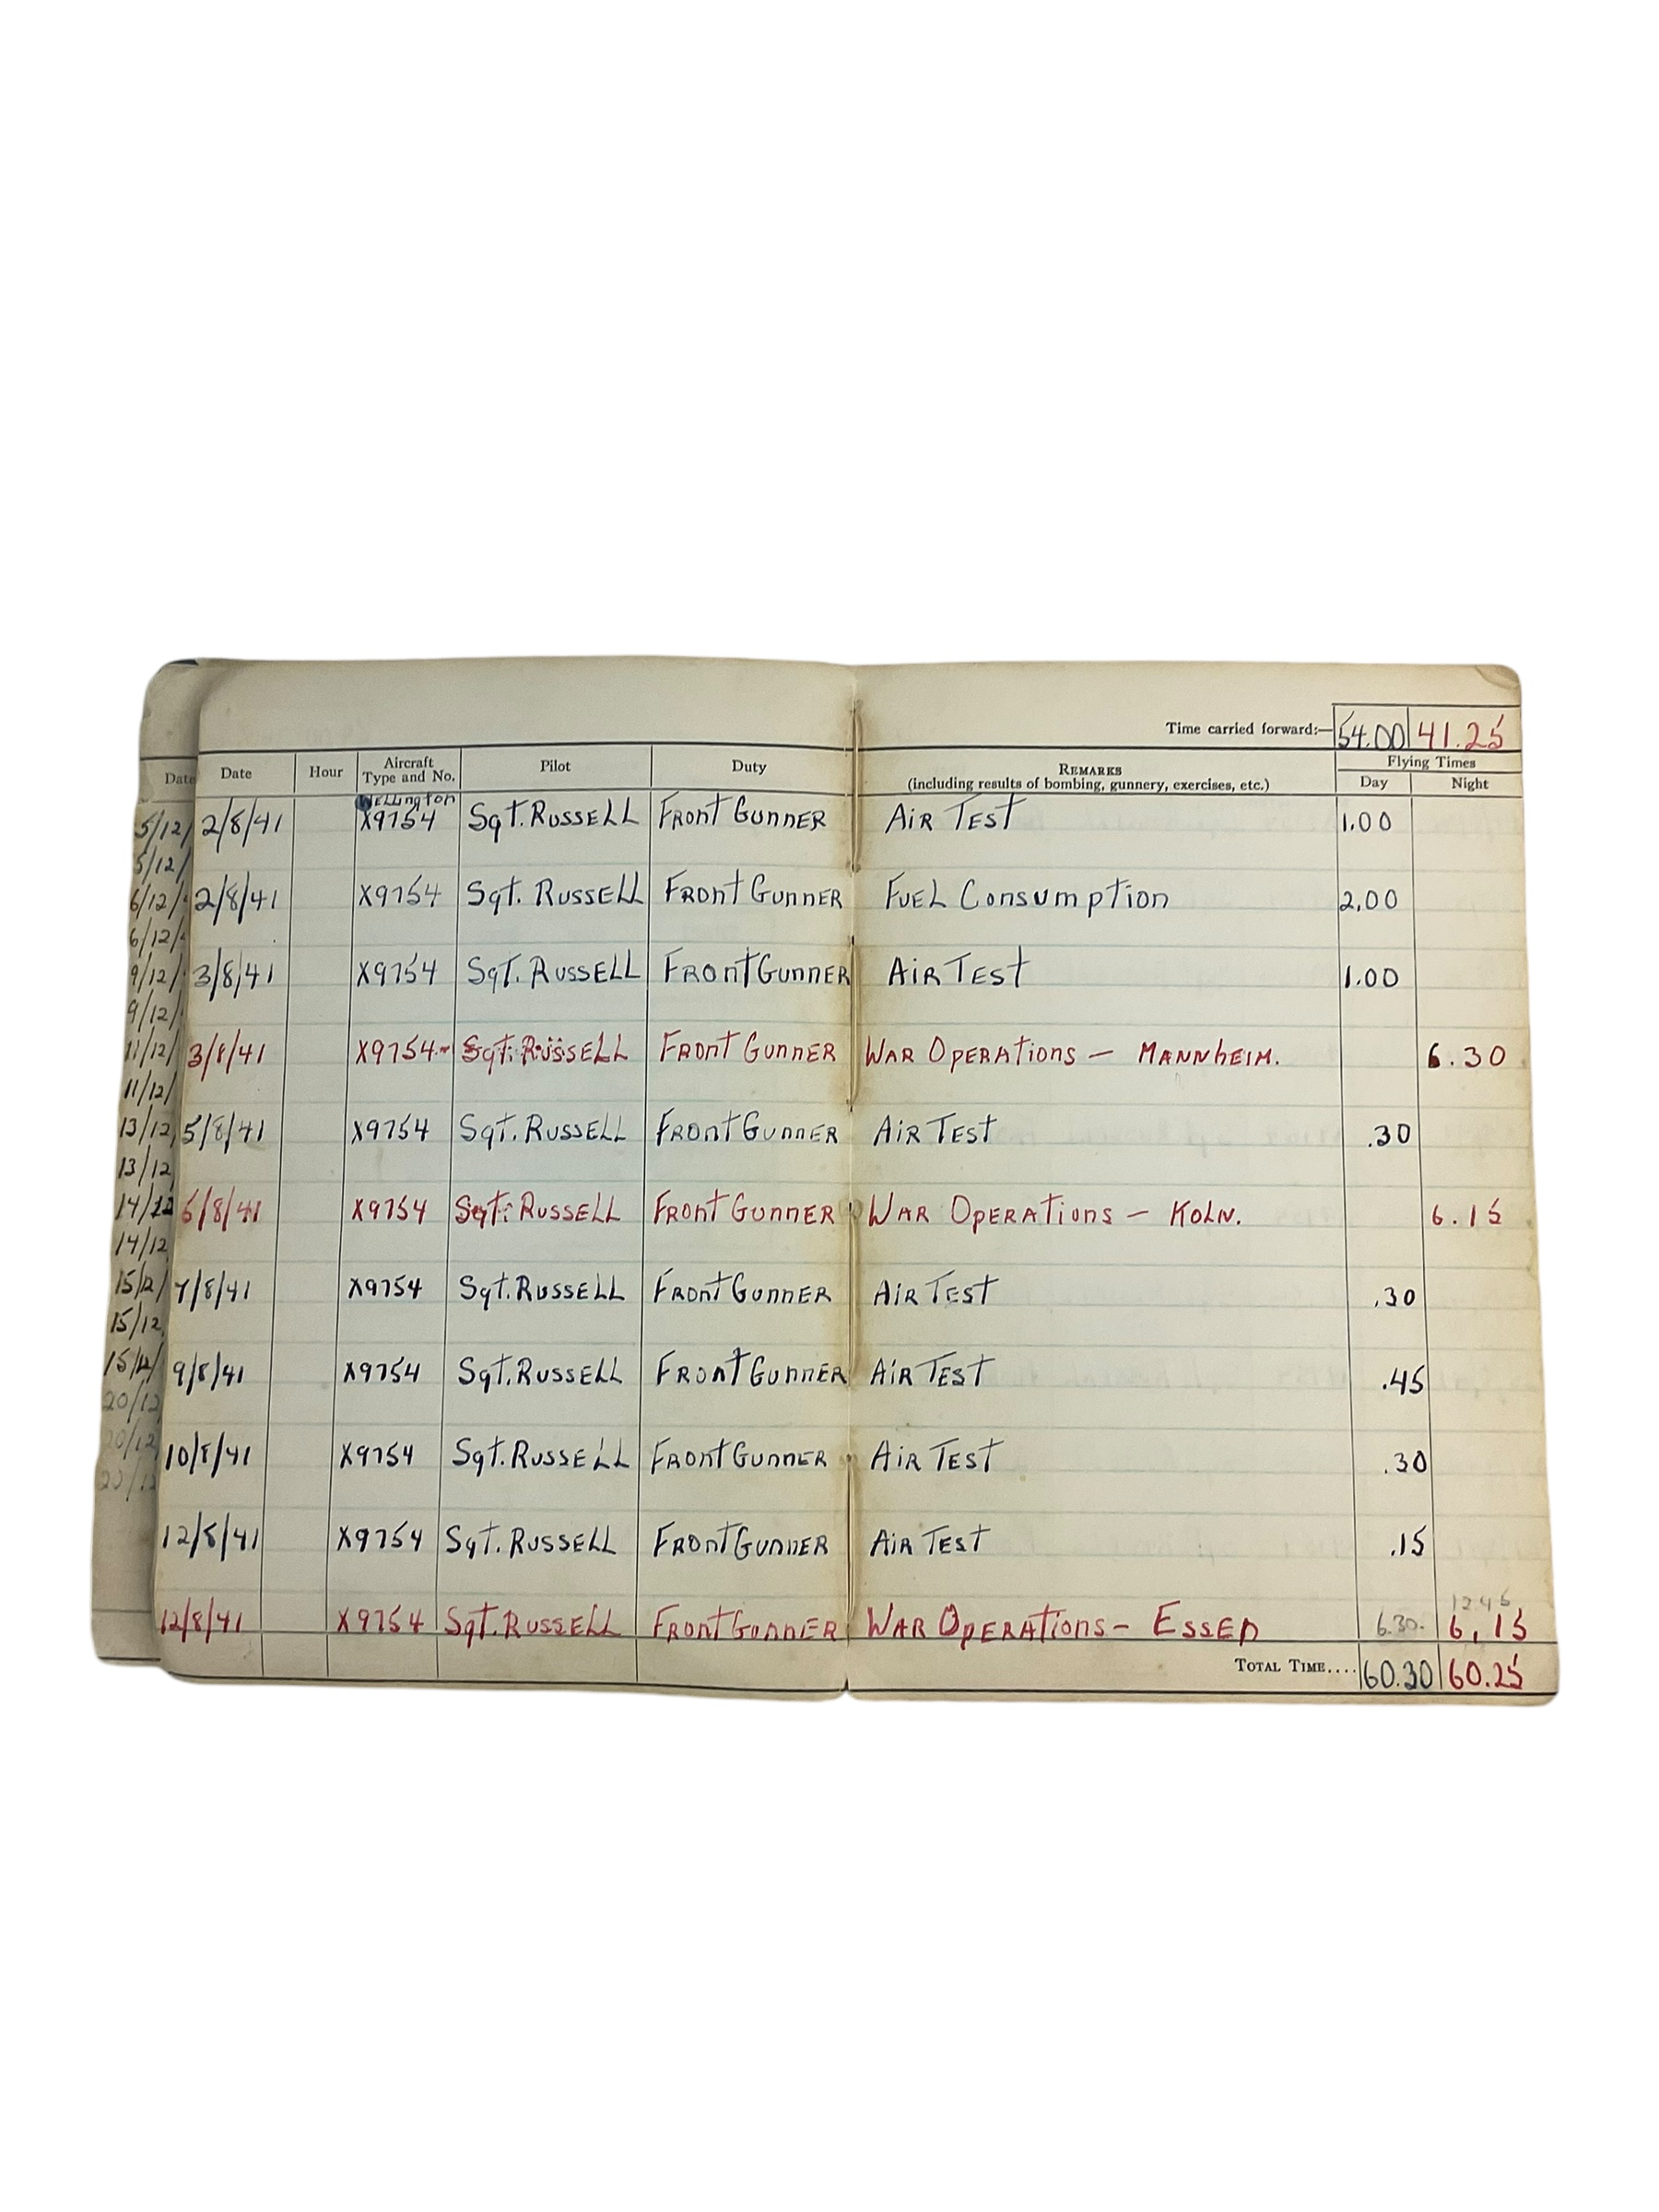 Time carried forward:— 54.00 41.25
Date Date Hour Aircraft Type and No. Pilot Duty REMARKS (including results of bombing, gunnery, exercises, etc.) Flying Times Day Night
Wellington
5/12/ 2/8/41 X9754 Sgt. Russell Front Gunner Air Test 1.00
5/12/
6/12/ 2/8/41 X9754 Sgt. Russell Front Gunner Fuel Consumption 2.00
6/12/
9/12/ 3/8/41 X9754 Sgt. Russell Front Gunner Air Test 1.00
9/12/
11/12/ 3/8/41 X9754 Sgt. Russell Front Gunner War Operations — Mannheim. 6.30
11/12/
13/12 5/8/41 X9754 Sgt. Russell Front Gunner Air Test .30
13/12
14/12 5/8/41 X9754 Sgt. Russell Front Gunner War Operations — Koln. 6.15
14/12
15/12/ 7/8/41 X9754 Sgt. Russell Front Gunner Air Test .30
15/12
15/12/ 9/8/41 X9754 Sgt. Russell Front Gunner Air Test .45
20/12
20/12 10/8/41 X9754 Sgt. Russell Front Gunner Air Test .30
20/12
12/8/41 X9754 Sgt. Russell Front Gunner Air Test .15
12.45
12/8/41 X9754 Sgt. Russell Front Gunner War Operations — Essen 6.30. 6.15
TOTAL TIME.... 60.30 60.25